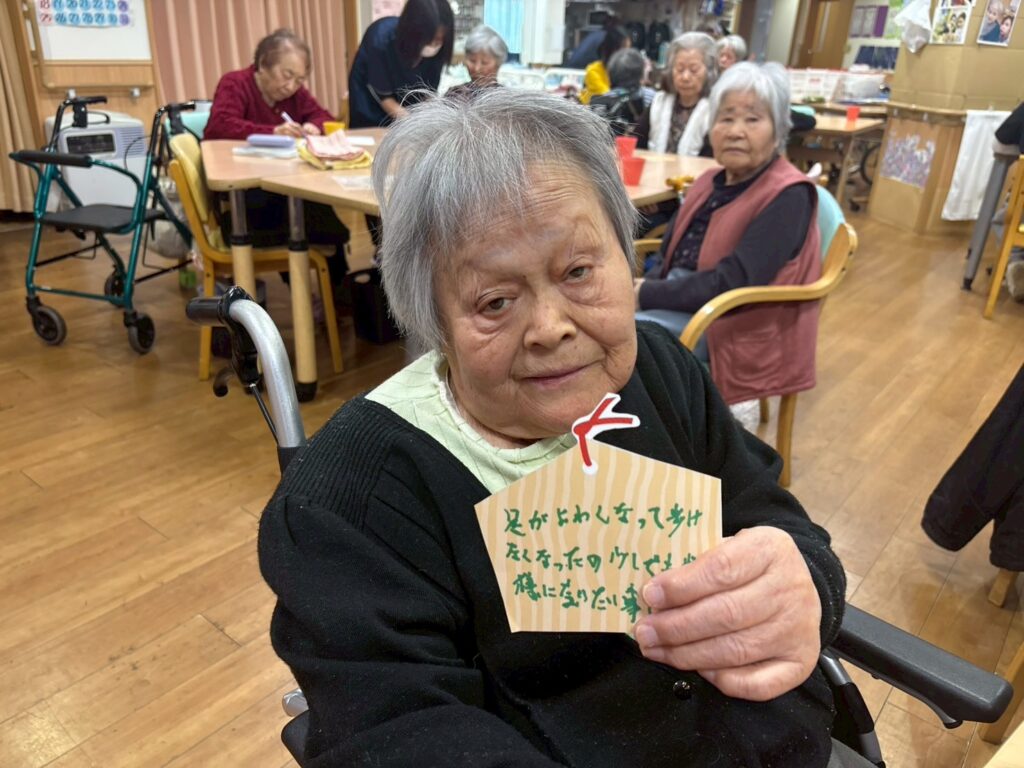 足がよわくなって歩け
なくなったの少しでも歩
様になりたい事